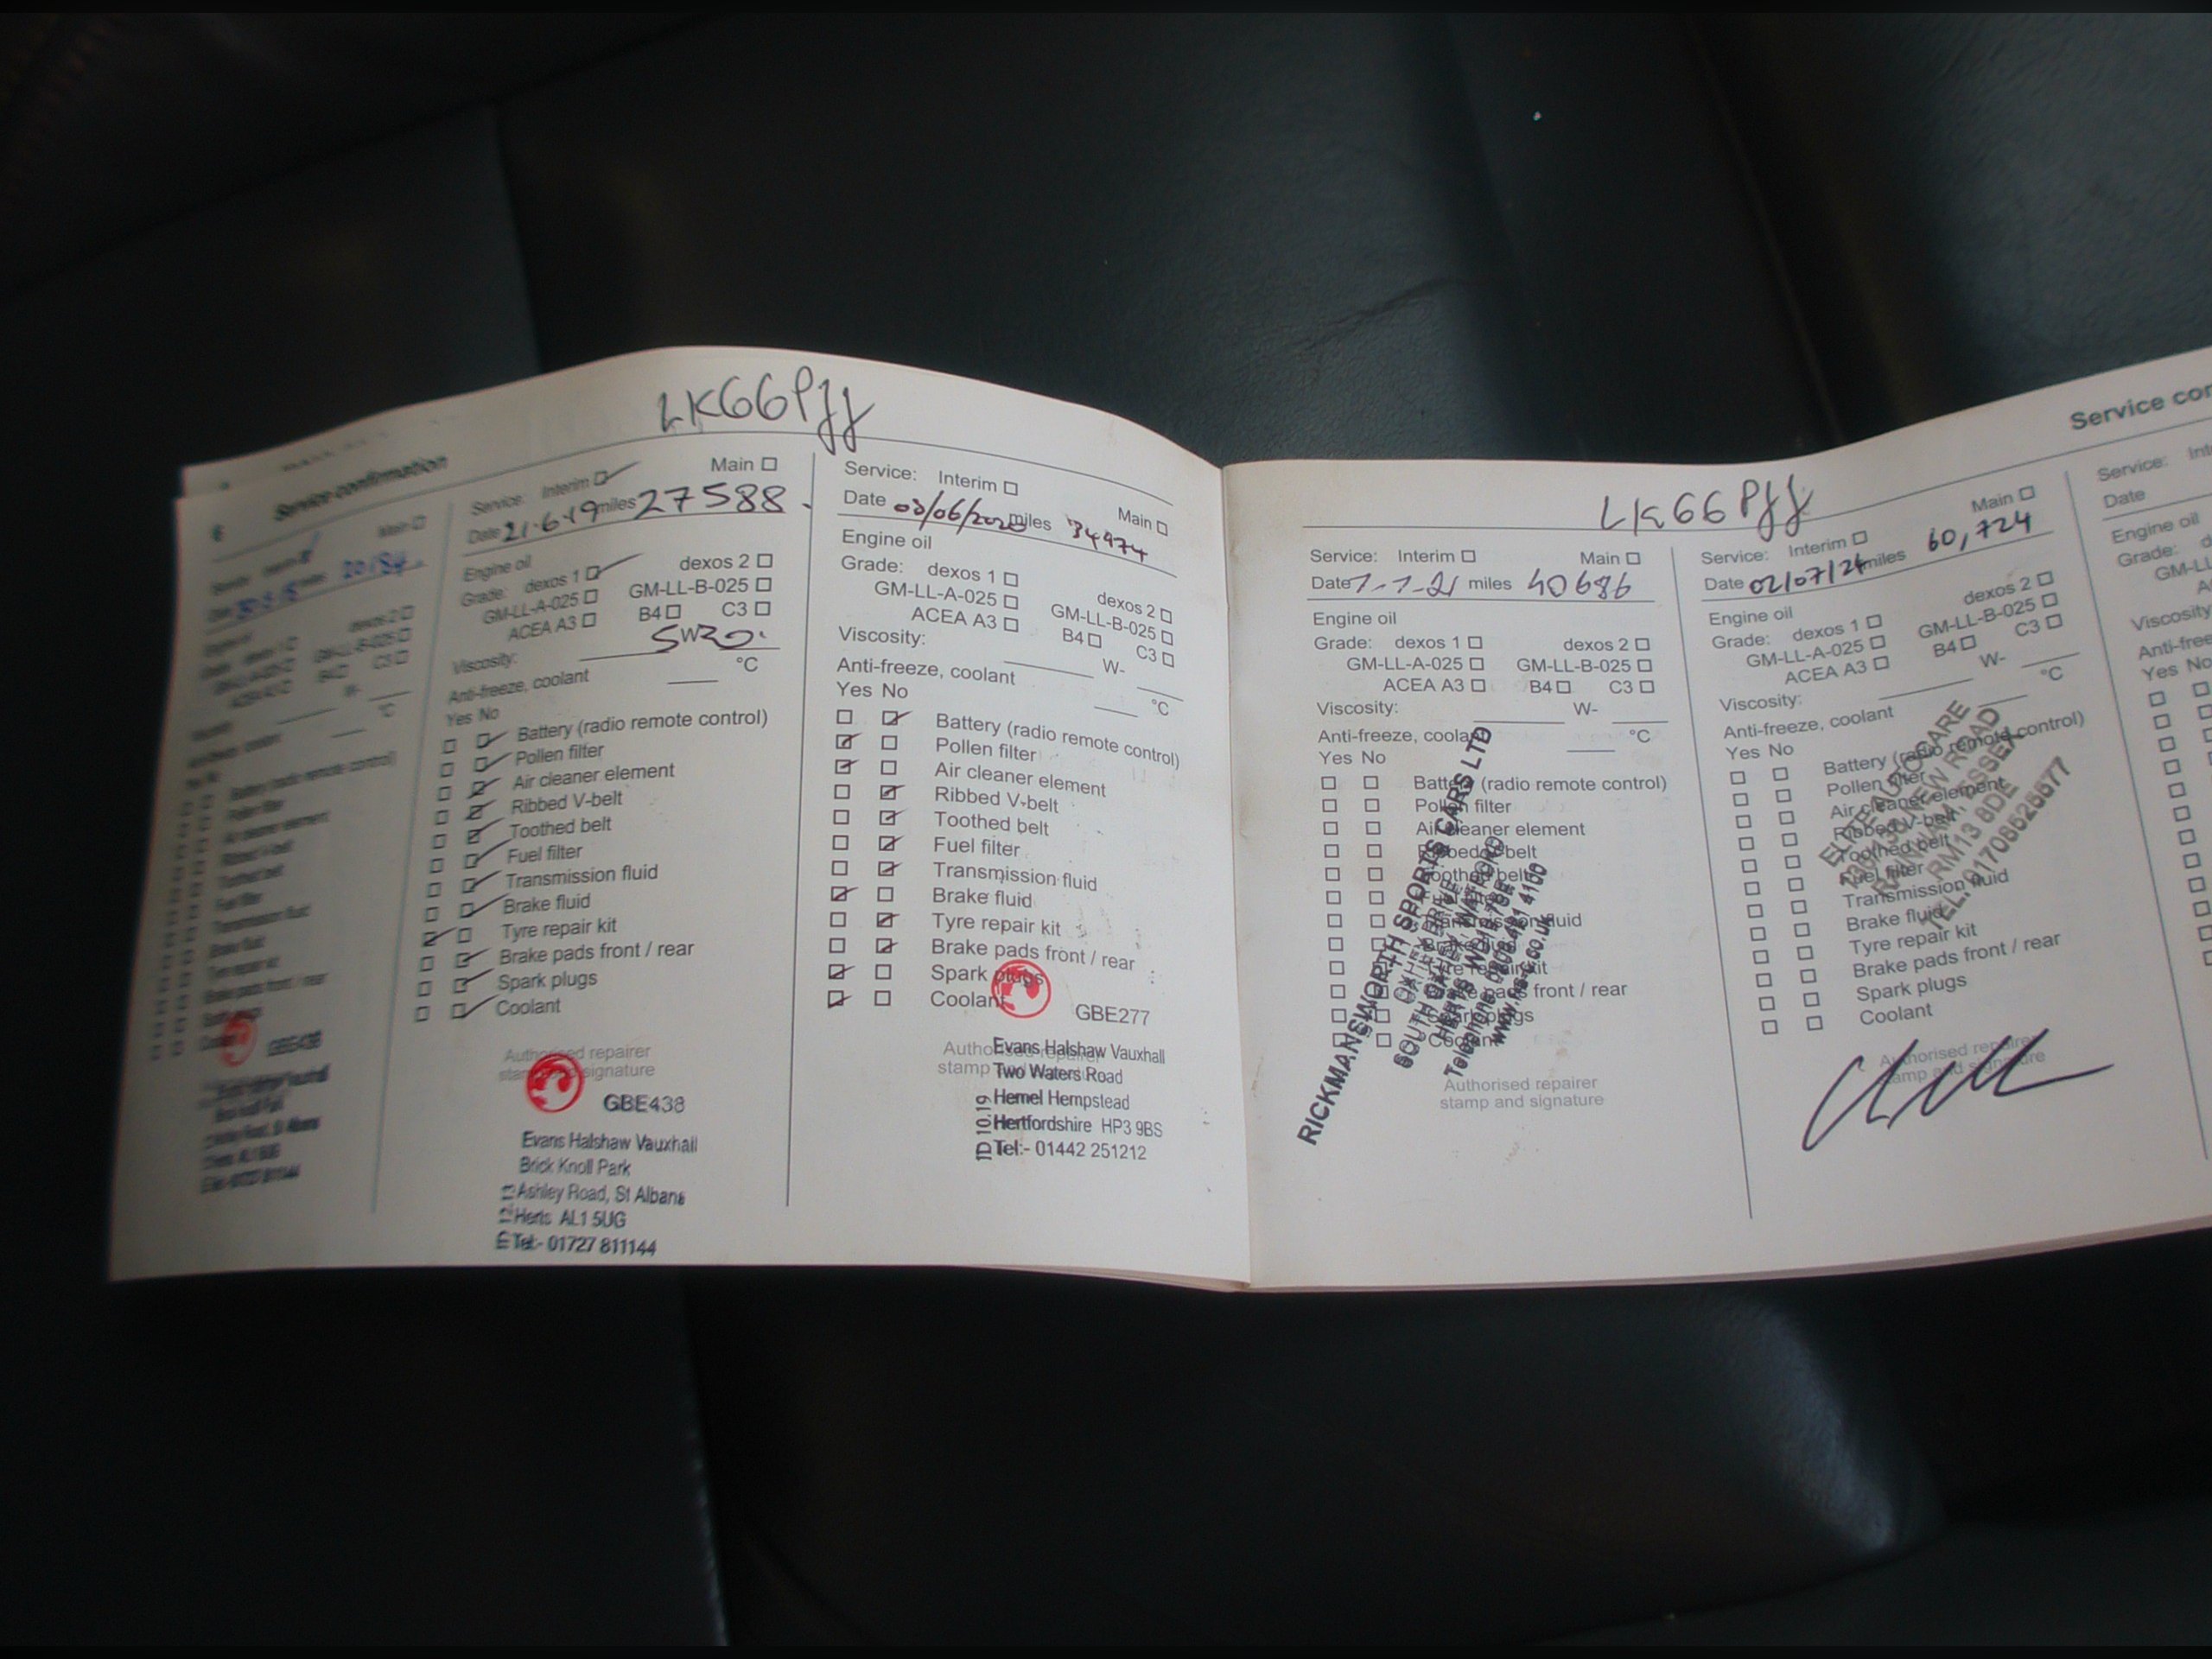 LK66PJJ
6 Service confirmation
Main
20184
dexos 2
GM-LL-B-025
C3
°C
Battery (radio remote control)
Air cleaner element
Ribbed V-belt
Toothed belt
Fuel filter
Transmission fluid
Brake fluid
Tyre repair kit
Brake pads front / rear
GBE438
Service: Interim Main
Date 21-6-19 miles 27588
Engine oil
Grade: dexos 1 dexos 2
GM-LL-A-025 GM-LL-B-025
ACEA A3 B4 C3
Viscosity: 5W30
Anti-freeze, coolant °C
Yes No
Battery (radio remote control)
Pollen filter
Air cleaner element
Ribbed V-belt
Toothed belt
Fuel filter
Transmission fluid
Brake fluid
Tyre repair kit
Brake pads front / rear
Spark plugs
Coolant
Authorised repairer
stamp and signature
GBE438
Evans Halshaw Vauxhall
Brick Knoll Park
Ashley Road, St Albans
Herts AL1 5UG
Tel:- 01727 811144
Service: Interim Main
Date 03/06/2020 miles 34974
Engine oil
Grade: dexos 1 dexos 2
GM-LL-A-025 GM-LL-B-025
ACEA A3 B4 C3
Viscosity: W-
Anti-freeze, coolant °C
Yes No
Battery (radio remote control)
Pollen filter
Air cleaner element
Ribbed V-belt
Toothed belt
Fuel filter
Transmission fluid
Brake fluid
Tyre repair kit
Brake pads front / rear
Spark plugs
Coolant
GBE277
Authorised repairer
stamp
Evans Halshaw Vauxhall
Two Waters Road
Hemel Hempstead
Hertfordshire HP3 9BS
Tel:- 01442 251212
ID 10.19
LK66PJJ
Service: Interim Main
Date 7-7-21 miles 40686
Engine oil
Grade: dexos 1 dexos 2
GM-LL-A-025 GM-LL-B-025
ACEA A3 B4 C3
Viscosity: W-
Anti-freeze, coolant °C
Yes No
Battery (radio remote control)
Pollen filter
Air cleaner element
Ribbed V-belt
Toothed belt
Tyre repair kit
front / rear
Spark plugs
Coolant
RICKMANSWORTH SPORTS CARS LTD
SOUTH OXHEY, WATFORD
Authorised repairer
stamp and signature
Service: Interim Main
Date 02/07/24 miles 60,724
Engine oil
Grade: dexos 1 dexos 2
GM-LL-A-025 GM-LL-B-025
ACEA A3 B4 C3
Viscosity: W-
Anti-freeze, coolant °C
Yes No
Battery (radio remote control)
Pollen filter
Air cleaner element
Ribbed V-belt
Toothed belt
Fuel filter
Transmission fluid
Brake fluid
Tyre repair kit
Brake pads front / rear
Spark plugs
Coolant
NEW ROAD
RAINHAM, ESSEX
RM13 8DE
TEL: 01708525577
Authorised repairer
stamp and signature
Service con
Service: Int
Date
Engine oil
Grade:
GM-LL
Viscosity
Anti-free
Yes No